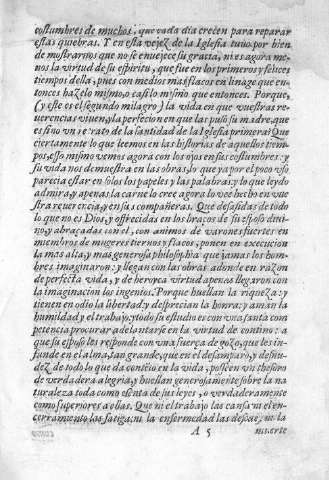 costumbres de muchos, que cada dia crecen para reparar
estas quiebras. Y en esta vejez de la Iglesia tuuo por bien
de mostrarnos que no se enuejece su gracia, ni es agora me
nos la virtud de su espiritu, que fue en los primeros y felices
tiempos della, pues con medios mas flacos en linage que en-
tonces haze lo mismo, o casi lo mismo que entonces. Porque,
(y este es el segundo milagro) la vida en que vuestras re
uerencias viuen, y la perfecion en que las puso su madre, que
es sino vn retrato de la santidad de la Iglesia primera? Que
ciertamente lo que leemos en las historias de aquellos tiem-
pos, esso mismo vemos agora con los ojos en sus costumbres: y
su vida nos demuestra en las obras, lo que ya por el poco vso
parecia estar en solos los papeles y las palabras: y lo que leydo
admira, y apenas la carne lo cree agora lo vee hecho en vues
tra reuerencia, y en sus compañeras. Que desasidas de todo
lo que no es Dios, y offrecidas en los braços de su esposo diui
no, y abraçadas con el, con animos de varones fuertes en
miembros de mugeres tiernos y flacos, ponen en execucion
la mas alta, y mas generosa philosophia que jamas los hom-
bres imaginaron: y llegan con las obras adonde en razon
de perfecta vida, y de heroyca virtud apenas llegaron con
la imaginacion los ingenios. Porque huellan la riqueza: y
tienen en odio la libertad, y desprecian la honra: y aman la
humildad y el trabajo, y todo su estudio es con vna santa com
petencia procurar adelantarse en la virtud de contino: a
que su esposo les responde con vna fuerça de gozo, que les in-
funde en el alma, tan grande, que en el desamparo, y desnu-
dez de todo lo que da contento en la vida, posseen vn thesoro
de verdadera alegria, y huellan generosamente sobre la na
turaleza toda como esenta de sus leyes, o verdaderamente
como superiores a ellas. Que ni el trabajo las cansa ni el en-
cerramiento las fatiga, ni la enfermedad las descae, ni la
A 5 muerte